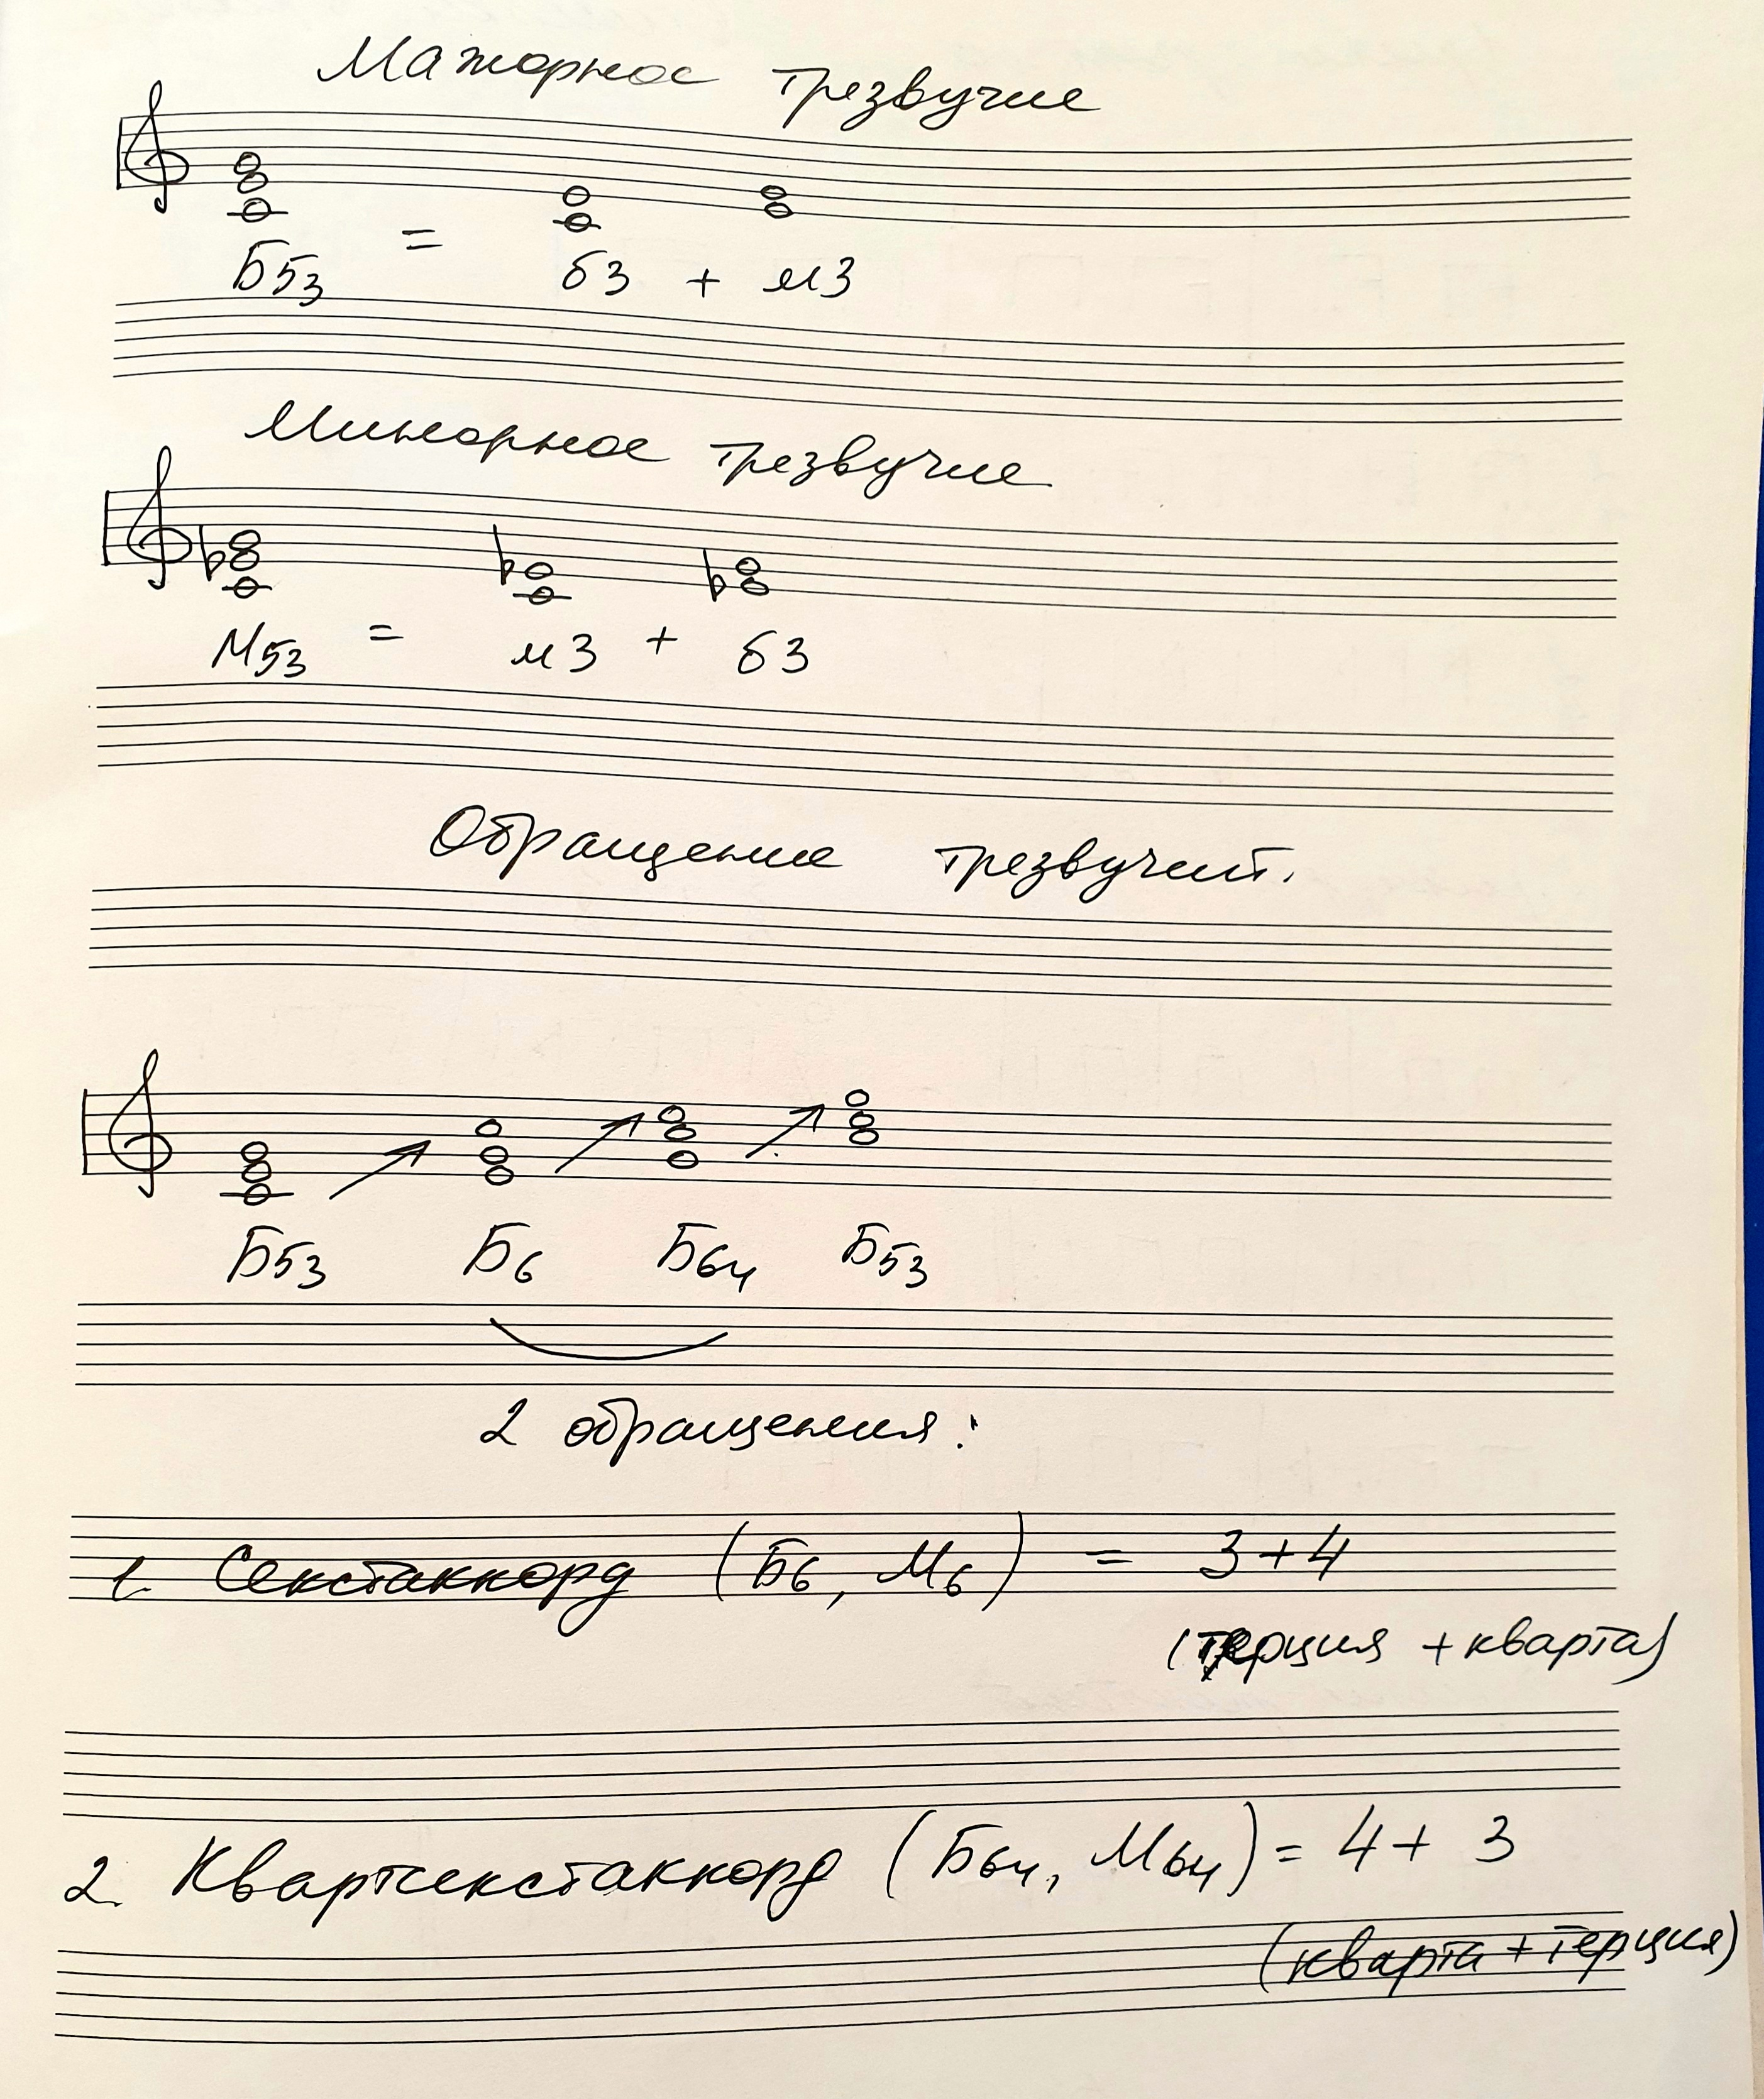 Мажорное трезвучие
Б53 = б3 + м3
Минорное трезвучие
М53 = м3 + б3
Обращение трезвучий.
Б53 Б6 Б64 Б53
2 обращения:
1. Секстаккорд (Б6, М6) = 3+4
(терция + кварта)
2. Квартсекстаккорд (Б64, М64) = 4+ 3
(кварта + терция)